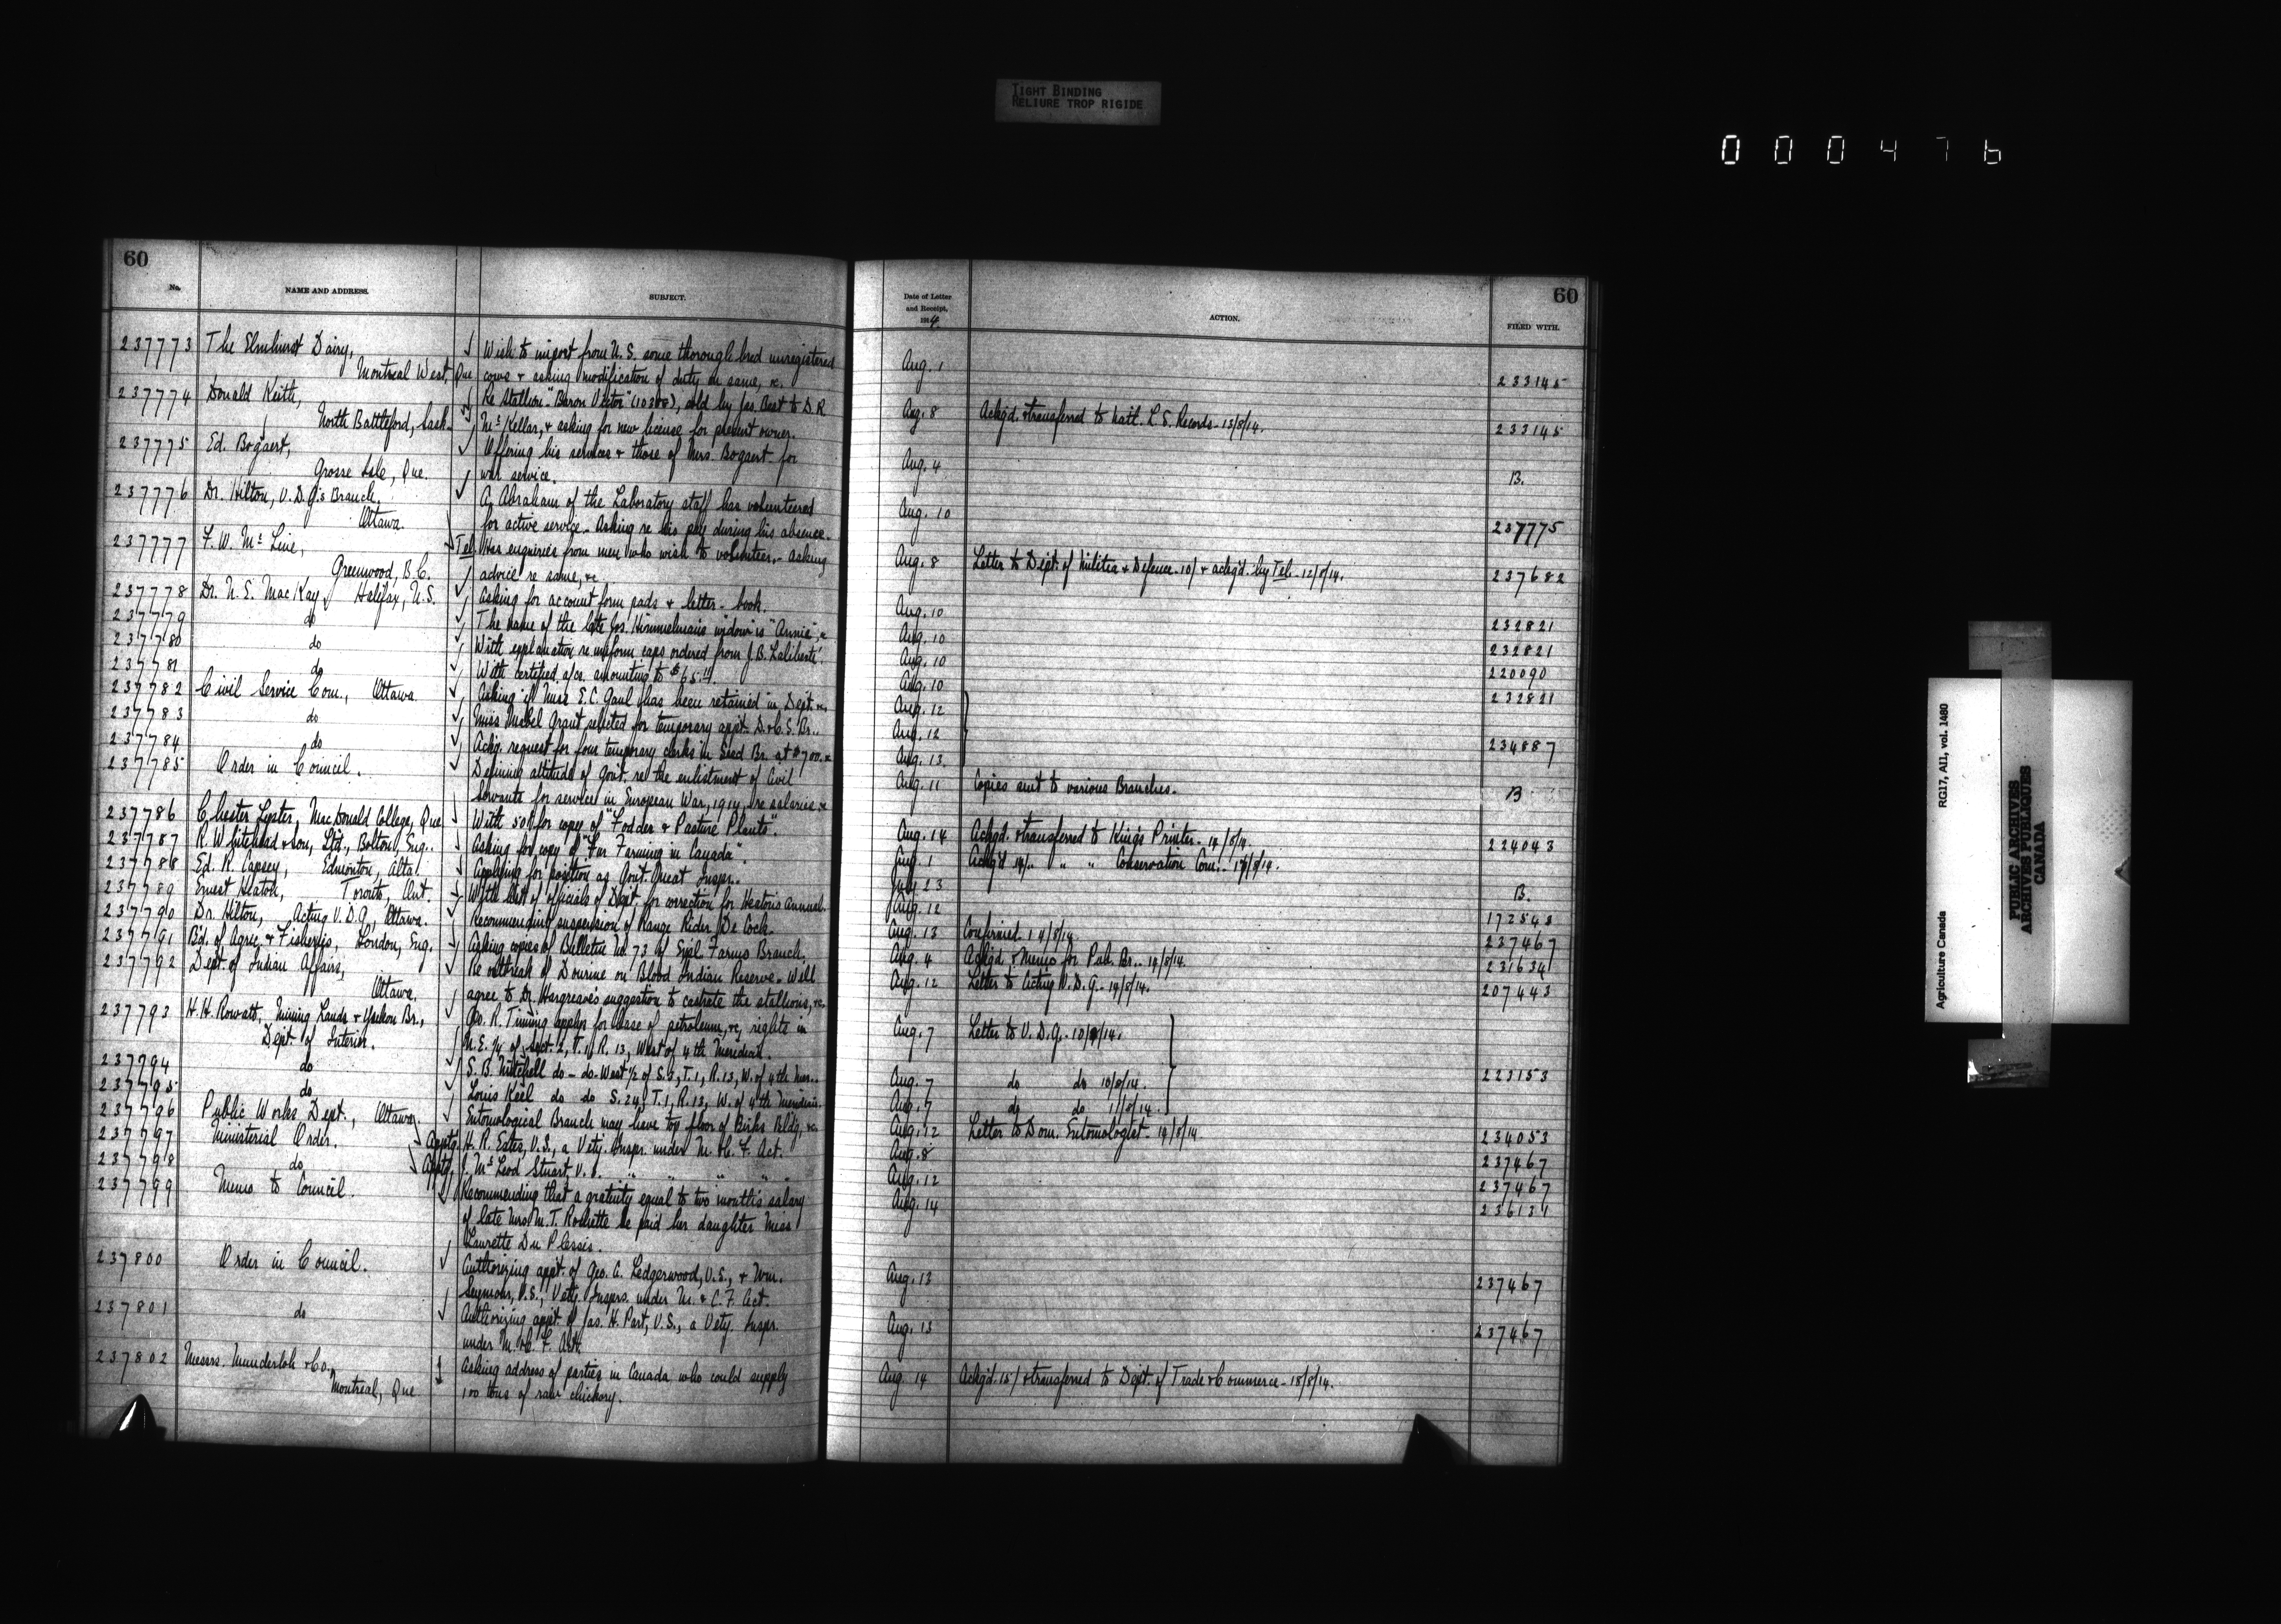 TIGHT BINDING
RELIURE TROP RIGIDE
000476
60
No.
NAME AND ADDRESS.
SUBJECT.
237773 The Elmhurst Dairy, Wish to import from U.S. some thorough bred unregistered
Montreal West, Que cows & asking modification of duty on same, &c.
237774 Donald Keith, Re Stallion "Baron Victor" (10388), sold by Jas. Best to D.R.
North Battleford, Sask. McKellar, & asking for new license for present owner.
237775 Ed. Bogaert, Offering his services & those of Mrs. Bogaert for
Grosse Isle, Que. war service.
237776 Dr. Hilton, V.D.G's Branch, Abraham of the Laboratory staff has volunteered
Ottawa. for active service. Asking re his pay during his absence.
237777 F. W. Mc Line, Tel. Has enquiries from men who wish to volunteer, - asking
Greenwood, B.C. advice re same, &c.
237778 Dr. N. S. MacKay, Halifax, N.S. Asking for account form pads & letter-book.
237779 do The name of the late Jos. Himmelman's widow is "Annie", &c
237780 do With explanation re uniform caps ordered from J.B. Laliberté
237781 do With certified a/cs. amounting to $65.11.
237782 Civil Service Com., Ottawa. Asking if Miss E.C. Gaul has been retained in Dept. &c.
237783 do Miss Mabel Grant selected for temporary appt. D. & C.S. Br..
237784 do Ackg. request for four temporary clerks in Seed Br. at $700. &c
237785 Order in Council. Defining attitude of Govt. re the enlistment of Civil
Servants for service in European War, 1914, re salaries &c
237786 Chester Lyster, MacDonald College, Que With 50¢ for copy of "Fodder & Pasture Plants".
237787 R. Whitehead & Son, Ltd., Bolton, Eng.. Asking for copy of "Fur Farming in Canada".
237788 Ed. R. Capsey, Edmonton, Alta. Applying for position as Govt. Meat Inspr..
237789 Ernest Heaton, Toronto, Ont. With list of officials of Dept. for correction for Heaton's Annual.
237790 Dr. Hilton, Acting V.D.G., Ottawa. Recommending suspension of Range Rider De Cock.
237791 Bd. of Agric. & Fisheries, London, Eng. Asking copies of Bulletin No. 73 of Expl. Farms Branch.
237792 Dept of Indian Affairs, Re outbreak of Dourine on Blood Indian Reserve. Will
Ottawa. agree to Dr. Hargrave's suggestion to castrate the stallions, &c.
237793 H. H. Rowatt, Mining Lands & Yukon Br., Geo. R. Timing applies for lease of petroleum, &c, rights in
Dept of Interior. N.E. ¼ of Sect. 2, T. 1, R. 13, West of 4th Meridian.
237794 do S. B. Mitchell do - do - West ½ of S. 3, T. 1, R. 13, W. of 4th Mer..
237795 do Louis Keel do do S. 24, T. 1, R. 13, W. of 4th Meridian.
237796 Public Works Dept., Ottawa, Entomological Branch may have top floor of Birks Bldg, &c.
237797 Ministerial Order. Apptg. H. R. Eates, V.S., a Vety. Inspr. under M. & C. F. Act.
237798 do Apptg. J. McLeod Stuart, V.S. " " " "
237799 Memo to Council. Recommending that a gratuity equal to two months' salary
of late Mrs. M. T. Rochette be paid her daughter Miss
Laurette Du Plessis.
237800 Order in Council. Authorizing appt. of Geo. A. Ledgerwood, V.S., & Wm.
Seymour, V.S., Vety. Insprs. under M. & C. F. Act.
237801 do Authorizing appt. of Jas. H. Part, V.S., a Vety. Inspr.
under M. & C. F. Act.
237802 Messrs. Munderloh & Co., Asking address of parties in Canada who could supply
Montreal, Que 100 tons of raw chickory.
60
Date of Letter and Receipt, 1914
ACTION.
FILED WITH.
Aug. 1 233145
Aug. 8 Ackgd. & transferred to Natl. L. S. Records - 13/8/14. 233145
Aug. 4 B.
Aug. 10 237775
Aug. 8 Letter to Dept. of Militia & Defence - 10/ & ackgd. by Tel. - 12/8/14. 237682
Aug. 10 232821
Aug. 10 232821
Aug. 10 220090
Aug. 10 232821
Aug. 12
Aug. 12 234887
Aug. 13
Aug. 11 Copies sent to various Branches. B
Aug. 14 Ackgd. & transferred to King's Printer - 14/8/14. 224043
Aug. 1 Ackg'd 14/.. " " Conservation Com: - 17/8/14.
July 23 B.
Aug. 12 172548
Aug. 13 Confirmed. 14/8/14 237467
Aug. 4 Ackgd. & Memo for Pub. Br.. 14/8/14. 231634
Aug. 12 Letter to Acting V.D.G. - 14/8/14. 207443
Aug. 7 Letter to V.D.G. - 10/8/14.
Aug. 7 do do 10/8/14. 223153
Aug. 7 do do 11/8/14.
Aug. 12 Letter to Dom. Entomologist - 14/8/14. 234053
Aug. 8 237467
Aug. 12 237467
Aug. 14 236131
Aug. 13 237467
Aug. 13 237467
Aug. 14 Ackg'd. 15/ & transferred to Dept. of Trade & Commerce - 18/8/14.
Agriculture Canada RG17, AII, vol. 1480
PUBLIC ARCHIVES
ARCHIVES PUBLIQUES
CANADA